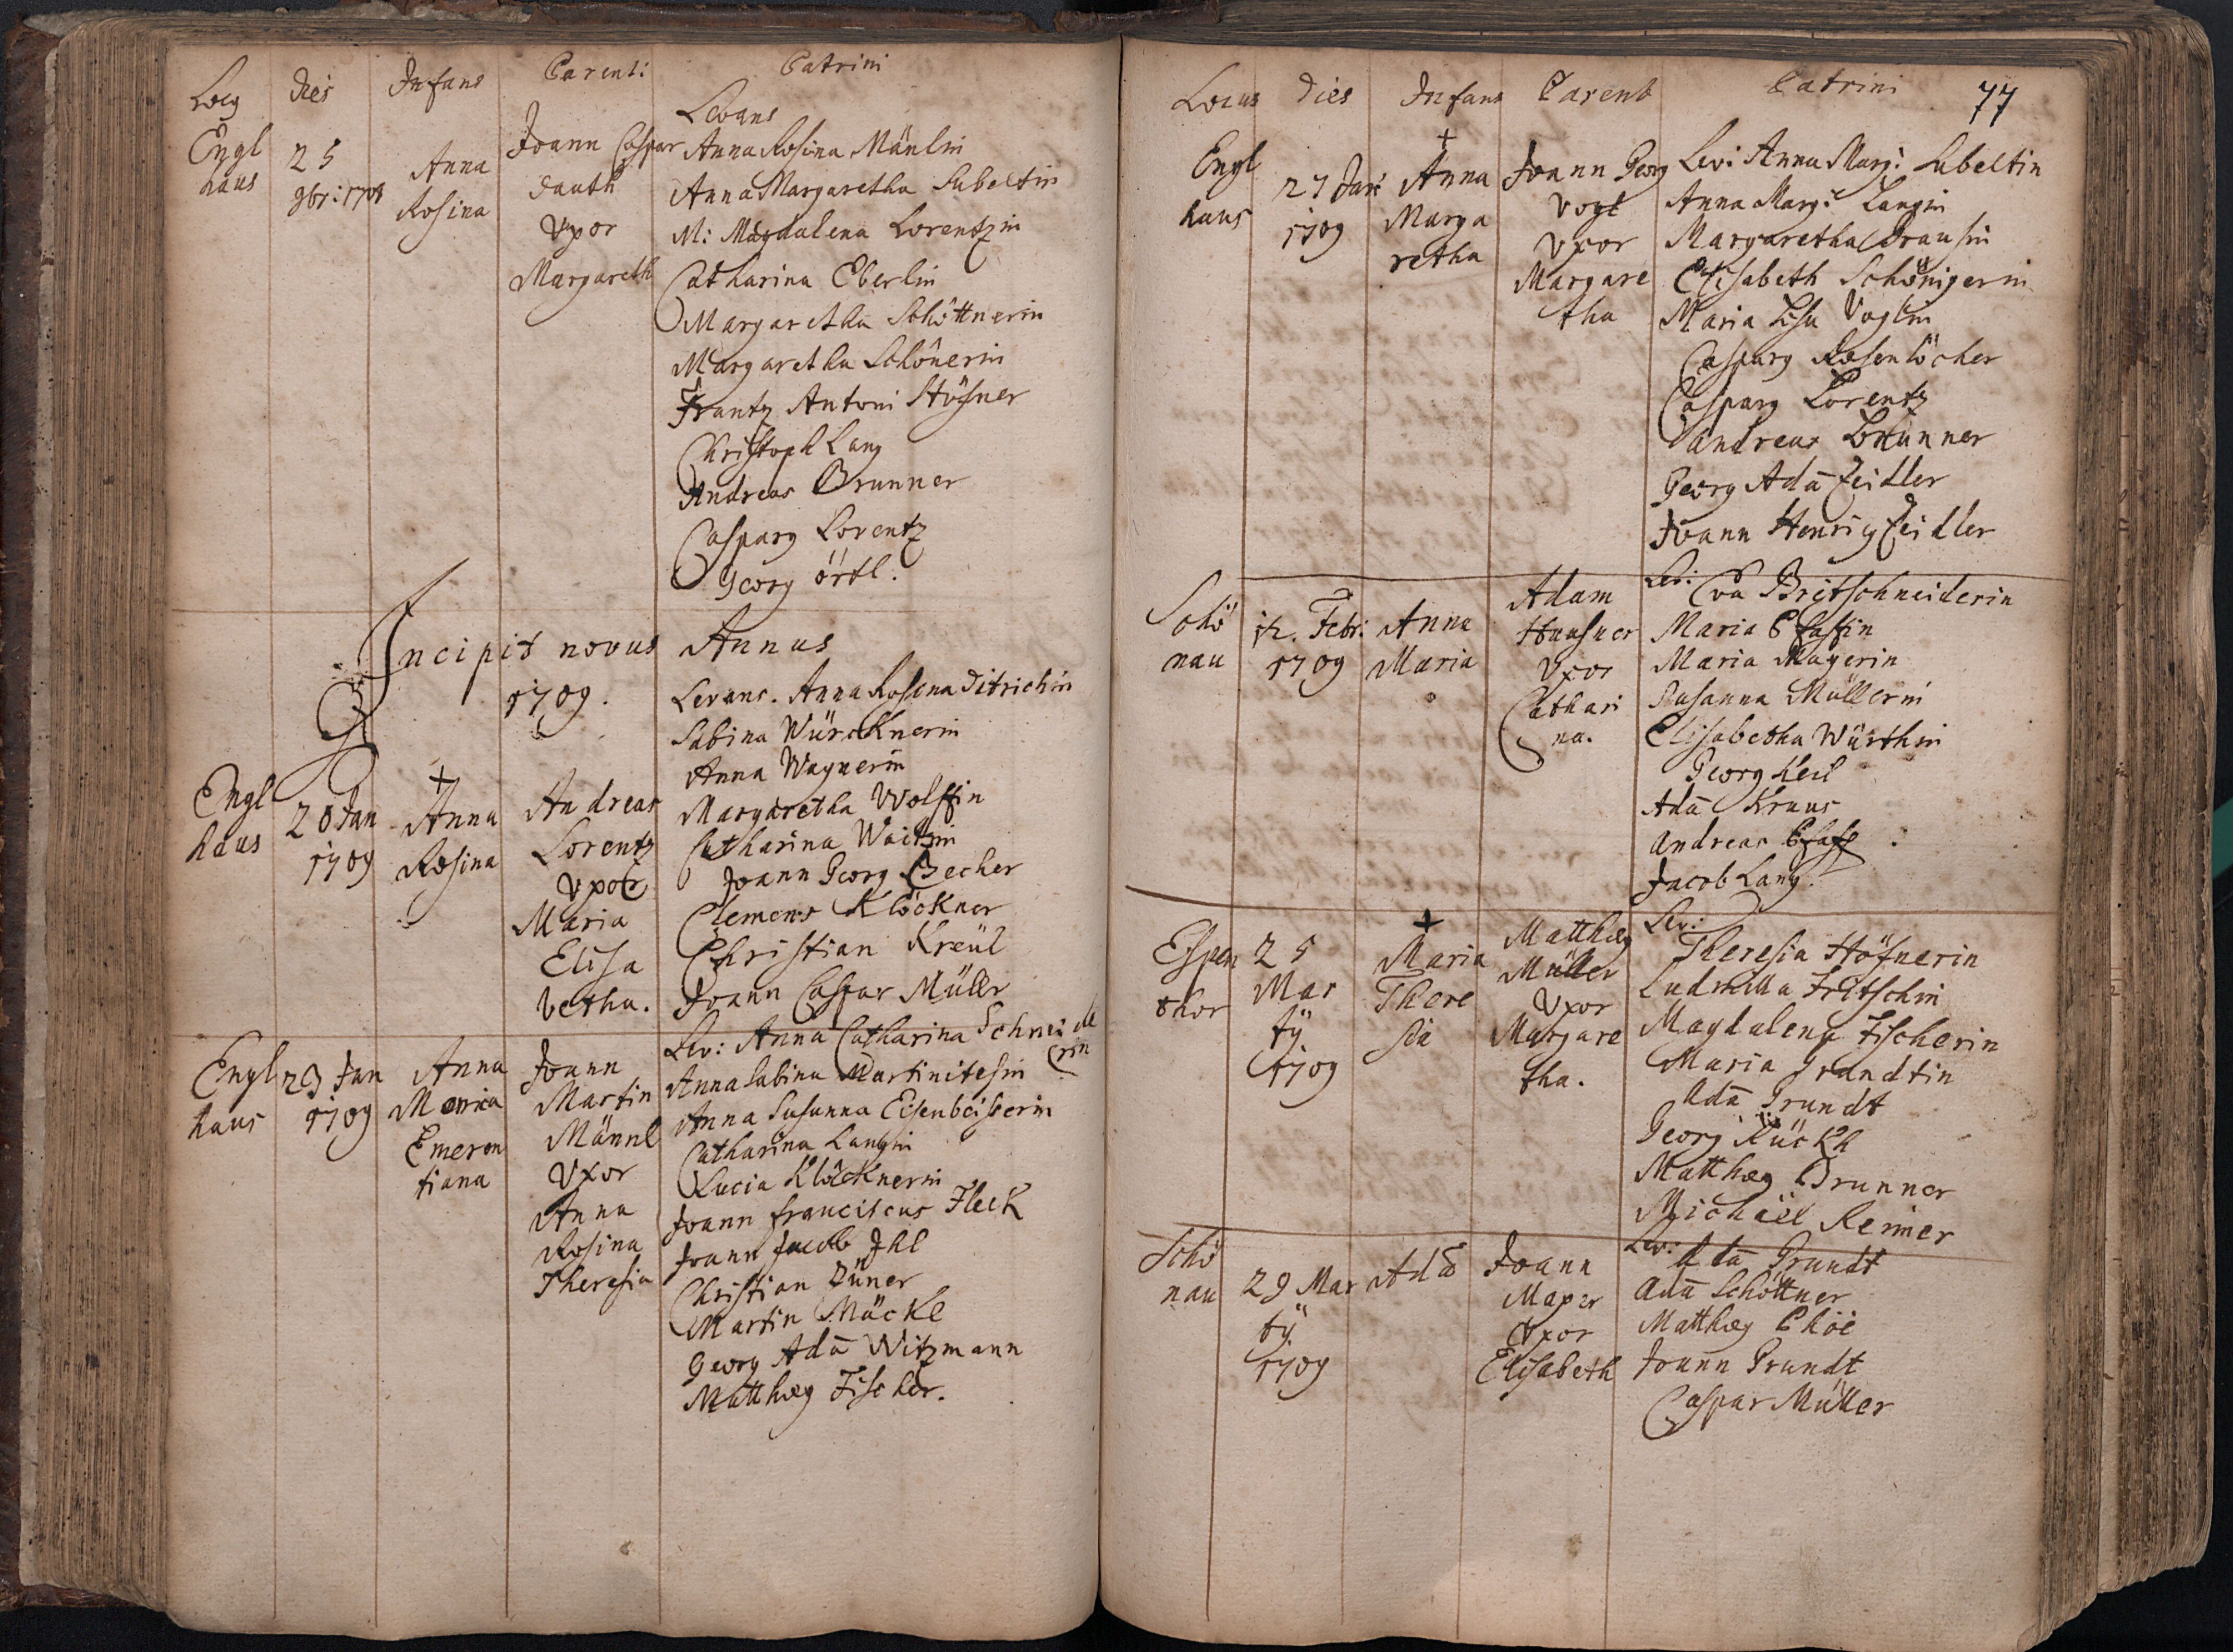 Locg
Dies
Infans
Parent:
Patrini
Engl
haus
25
9br: 1708
Anna
Rosina
Joann Caspar
Dauth
Vxor
Margareth
Levans
Anna Rosina Mänlin
Anna Margaretha Subeltin
M: Magdalena Lorentzin
Catharina Eberlin
Margaretha Schöttnerin
Margaretha Schönerin
Frantz Antoni Höfner
Christoph Lang
Andreas Brunner
Casparg Lorentz
Georg örtl.
Incipit novus Annus
1709.
Engl
haus
20 Jan
1709
Anna
Rosina
Andreas
Lorentz
Vxor
Maria
Elisa
betha.
Levans. Anna Rosina Ditrichin
Sabina Würcknerin
Anna Wagnerin
Margaretha Wolffin
Catharina Waitzin
Joann Georg Becher
Clemens Klöckner
Christian Kreül
Joann Caspar Müllr
Engl
haus
23 Jan
1709
Anna
Maria
Emeren
tiana
Joann
Martin
Männl
Vxor
Anna
Rosina
Theresia
Lev: Anna Catharina Schneide
rin
Anna Sabina Martinitesin
Anna Susanna Eisenbeiserin
Catharina Langin
Lucia Klöcknerin
Joann franciscus Fleck
Joann Jacob Ihl
Christian Züner
Martin Mäckl
Georg Adā Witzmann
Matthæg Fischer.
Locus
Dies
Infans
Parent
Patrini
77
Engl
haus
27 Jan:
1709
Anna
Marga
retha
Joann Georg
Vogl
Vxor
Margare
tha
Levi Anna Marg: Subeltin
Anna Marg: Langin
Margaretha
Elisabeth Schönigerin
Maria Lisa Voglin
Casparg Rosenlöcher
Casparg Lorentz
Andreas Brunner
Georg Adā Zeidler
Joann Henrig Zeidler
Schö
nau
12. Febr:
1709
Anna
Maria
Adam
Hausner
Vxor
Cathari
na.
Lev: Eva Britschneiderin
Maria Pfaffin
Maria Mayerin
Susanna Müllerin
Elisabetha Würthin
Georg Keil
Adā Kraus
Andreas Pfaff
Jacob Lang.
Espen
thor
25
Mar
tÿ
1709
Maria
There
sia
Matthæg
Müller
Vxor
Margare
tha.
Lev:
Theresia Höfnerin
Ludmilla Fritschin
Magdalena Fischerin
Maria Grundtin
Adā Grundt
Georg Rückh
Matthæg Brunner
Michäel Reimer
Schö
nau
29 Mar
tÿ
1709
Adā
Joann
Mayer
Vxor
Elisabeth
Lev:
Adā Grundt
Adā Schöttner
Matthæg
Joann Grundt
Caspar Müller